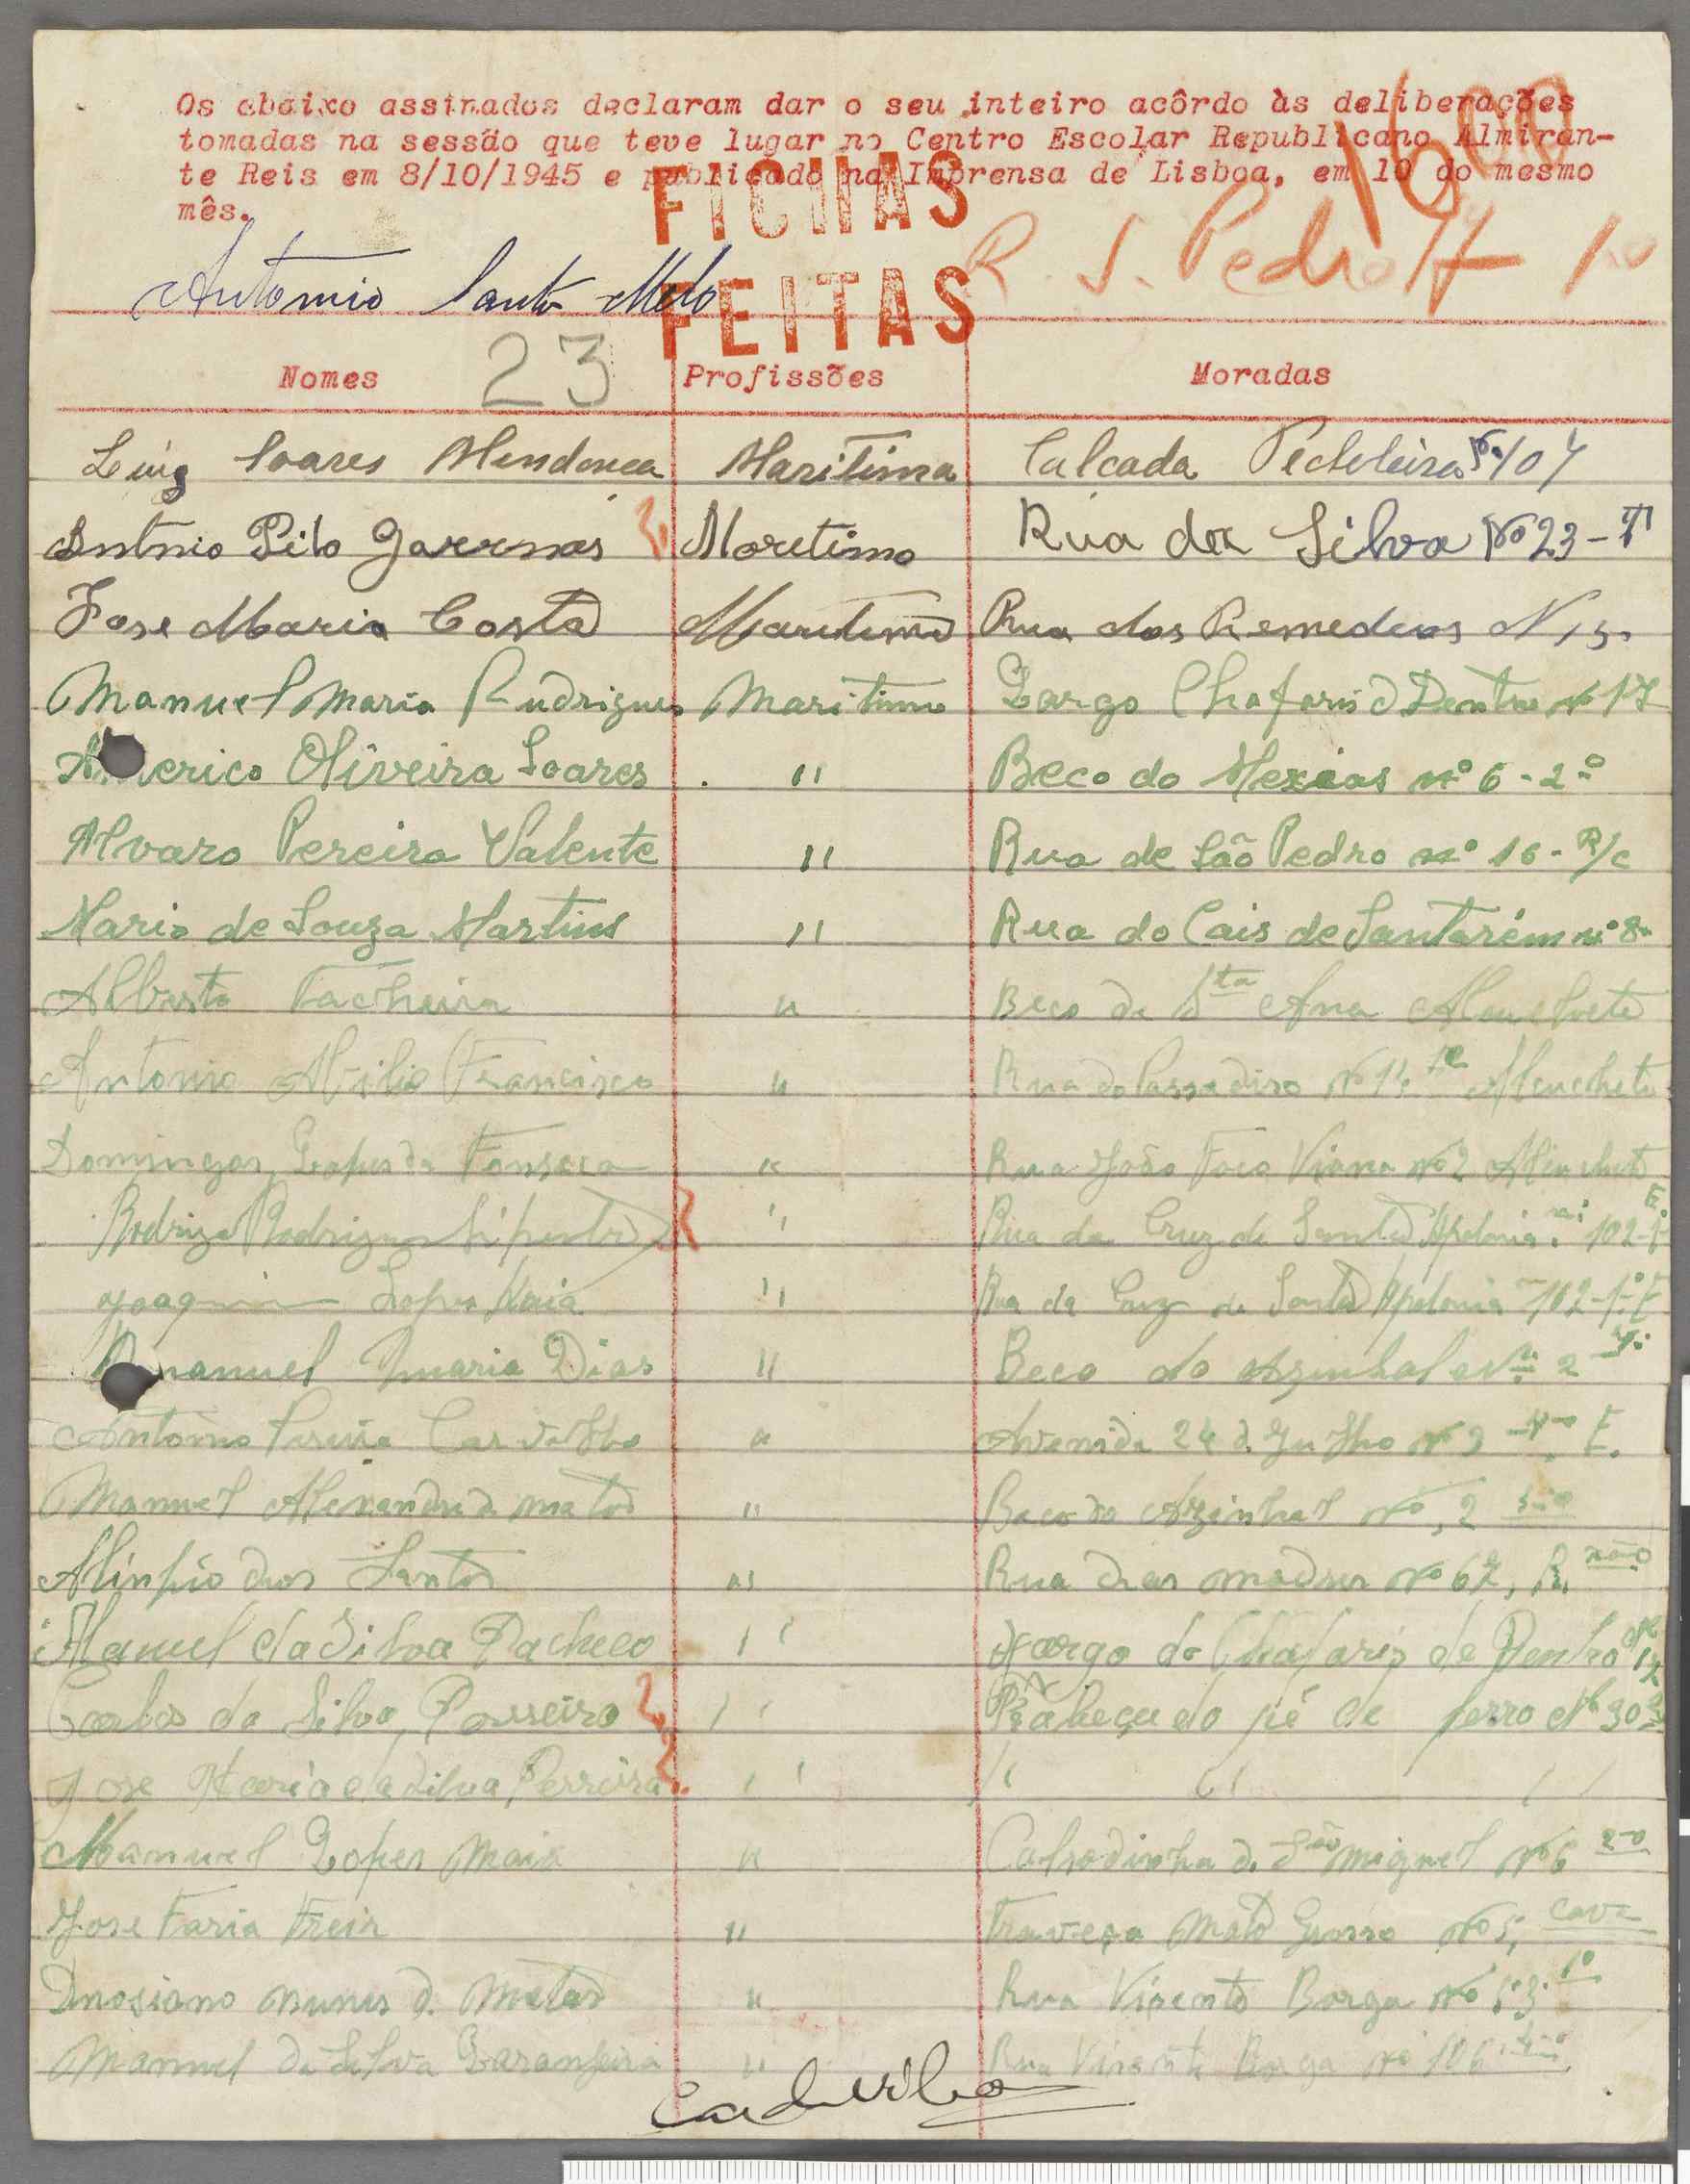 Os abaixo assinados declaram dar o seu inteiro acôrdo às deliberações
tomadas na sessão que teve lugar no Centro Escolar Republicano Almiran-
te Reis em 8/10/1945 e publicado na Imprensa de Lisboa, em 10 do mesmo
mês.
1600
FICHAS
FEITAS
R. S. Pedro 17 1º
Antonio Santo Melo
23
Nomes Profissões Moradas
Luiz Soares Mendonca Maritima Calcada 104
Antnio Maretimo Rua da Silva Nº 23 -
Jose Maria Costa Maritimo Rua dos Remedios N
Manuel Maria Rudrigues Maritimo Largo Chafaris d Dentro nº 17
Americo Oliveira Soares " Beco do Mexias nº 6 - 2º
Alvaro Pereira Valente " Rua de São Pedro nº 16 - R/c
Mario de Souza Martins " Rua do Cais de Santarém nº 8
Alberto " Beco de Sta Ana
Antonio Francisco " Rua do Passadiso nº
Domingos Lopes da Fonseca " Rua João Viana nº 2
Rodrigo Rodrigues " Rua da Cruz de Santa Apolonia nº 102
Joaquim Lopes Maia " Rua da Cruz de Santa Apolonia 102-1º E
Manuel Maria Dias " Beco do Azinhal Nº 2
Antonio Pereira Carvalho " Avenida 24 d Julho nº 9 E.
Manuel Alexandre d. Matos " Beco do Azinhal nº, 2
Alinpio dos Santos " Rua das madres nº 67, R.
Manuel da Silva Pacheco " Largo do Chafariz de Dentro 17
Carlos da Silva, " pé de ferro Nº 30
Jose Maria da Silva, Perreira " " " "
Manuel Lopes Maia " Calsadinha d. São Miguel nº 6 2º
Jose Faria Freir " Travesa Mato Grosso nº 5, cave
nunes d. Matos " Rua Visente Borga nº
Manuel da Silva Laranjeira " Rua Visente Borga nº 106